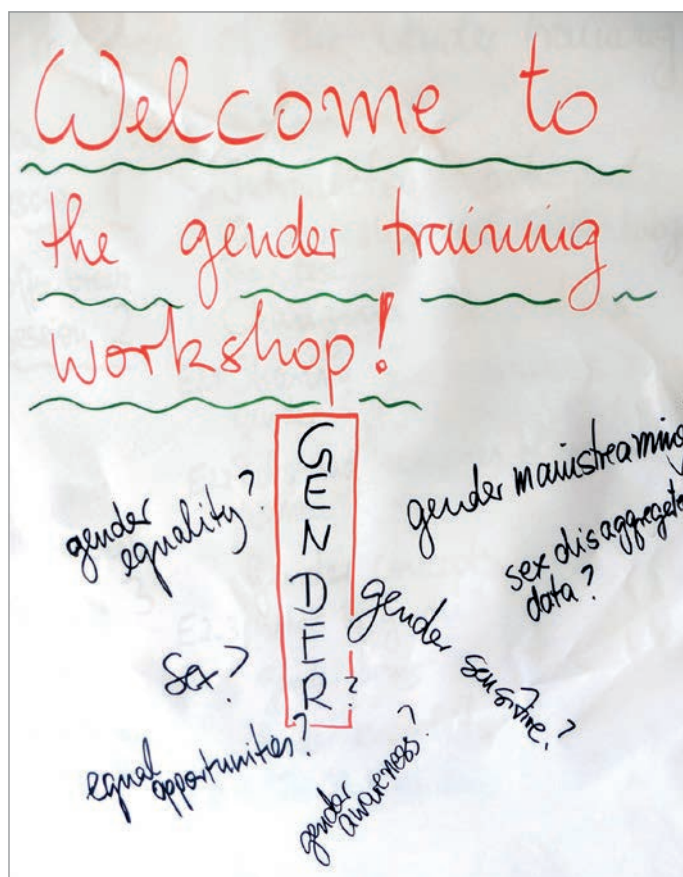 Welcome to
the gender training
workshop!
GENDER?
gender
equality?
gender mainstreaming
sex disaggregated
data?
gender sensitive?
Sex?
equal
opportunities?
gender
awareness?